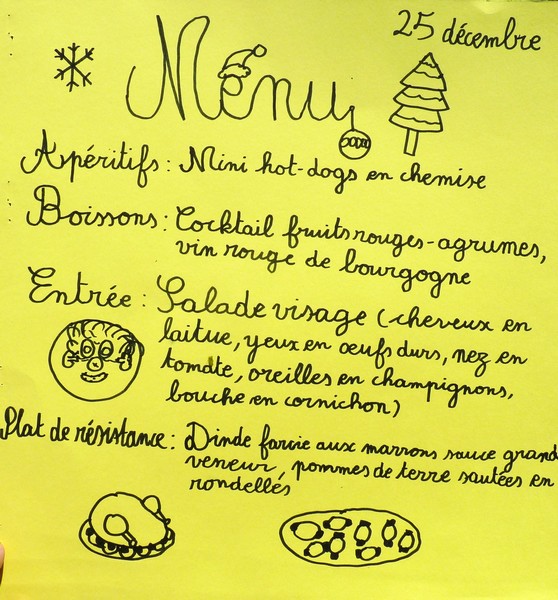 25 décembre
Menu
Apéritifs : Mini hot-dogs en chemise
Boissons : Cocktail fruits rouges-agrumes,
vin rouge de bourgogne
Entrée : Salade visage (cheveux en
laitue, yeux en œufs durs, nez en
tomate, oreilles en champignons,
bouche en cornichon)
Plat de résistance : Dinde farcie aux marrons sauce grand
veneur, pommes de terre sautées en
rondelles